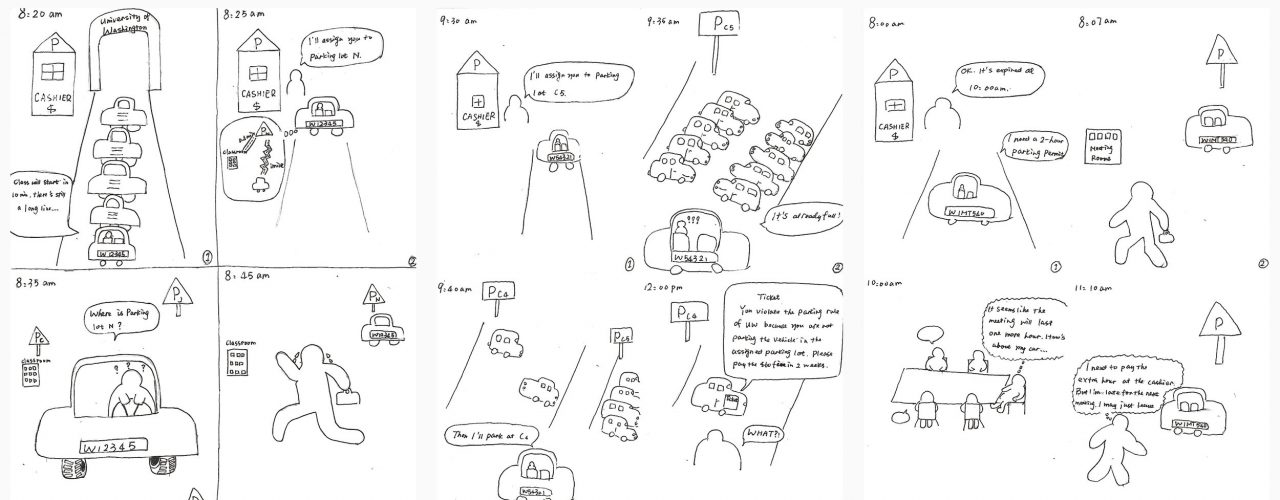 8:20 am
University of
Washington
P
CASHIER
$
Class will start in
10 min, there's still
a long line...
W12345
1
8:25 am
I'll assign you to
Parking lot N.
P
CASHIER
$
W12345
classroom
2
8:35 am
PJ
Where is Parking
lot N?
PG
classroom
? ? ?
W12345
8:45 am
PN
classroom
W12345
9:30 am
P
I'll assign you to Parking
lot C5.
CASHIER
$
W54321
1
9:36 am
PC5
???
It's already full!
W54321
2
9:40 am
PC4
PC5
Then I'll park at C4
W54321
12:00 pm
PC4
Ticket
You violate the parking rule
of UW because you are not
parking the vehicle in the
assigned parking lot. Please
pay the in 2 weeks.
WHAT?!
8:00 am
P
OK. It's expired at
10:00am.
CASHIER
$
I need a 2-hour
parking Permit
W1MT540
1
8:07 am
P
Meeting
Rooms
W1MT540
2
10:00am
It seems like the
meeting will last
one more hour. How's
about my car...
11:10 am
P
I need to pay the
extra hour at the cashier.
But I'm late for the next
meeting. I may just leave
W1MT540